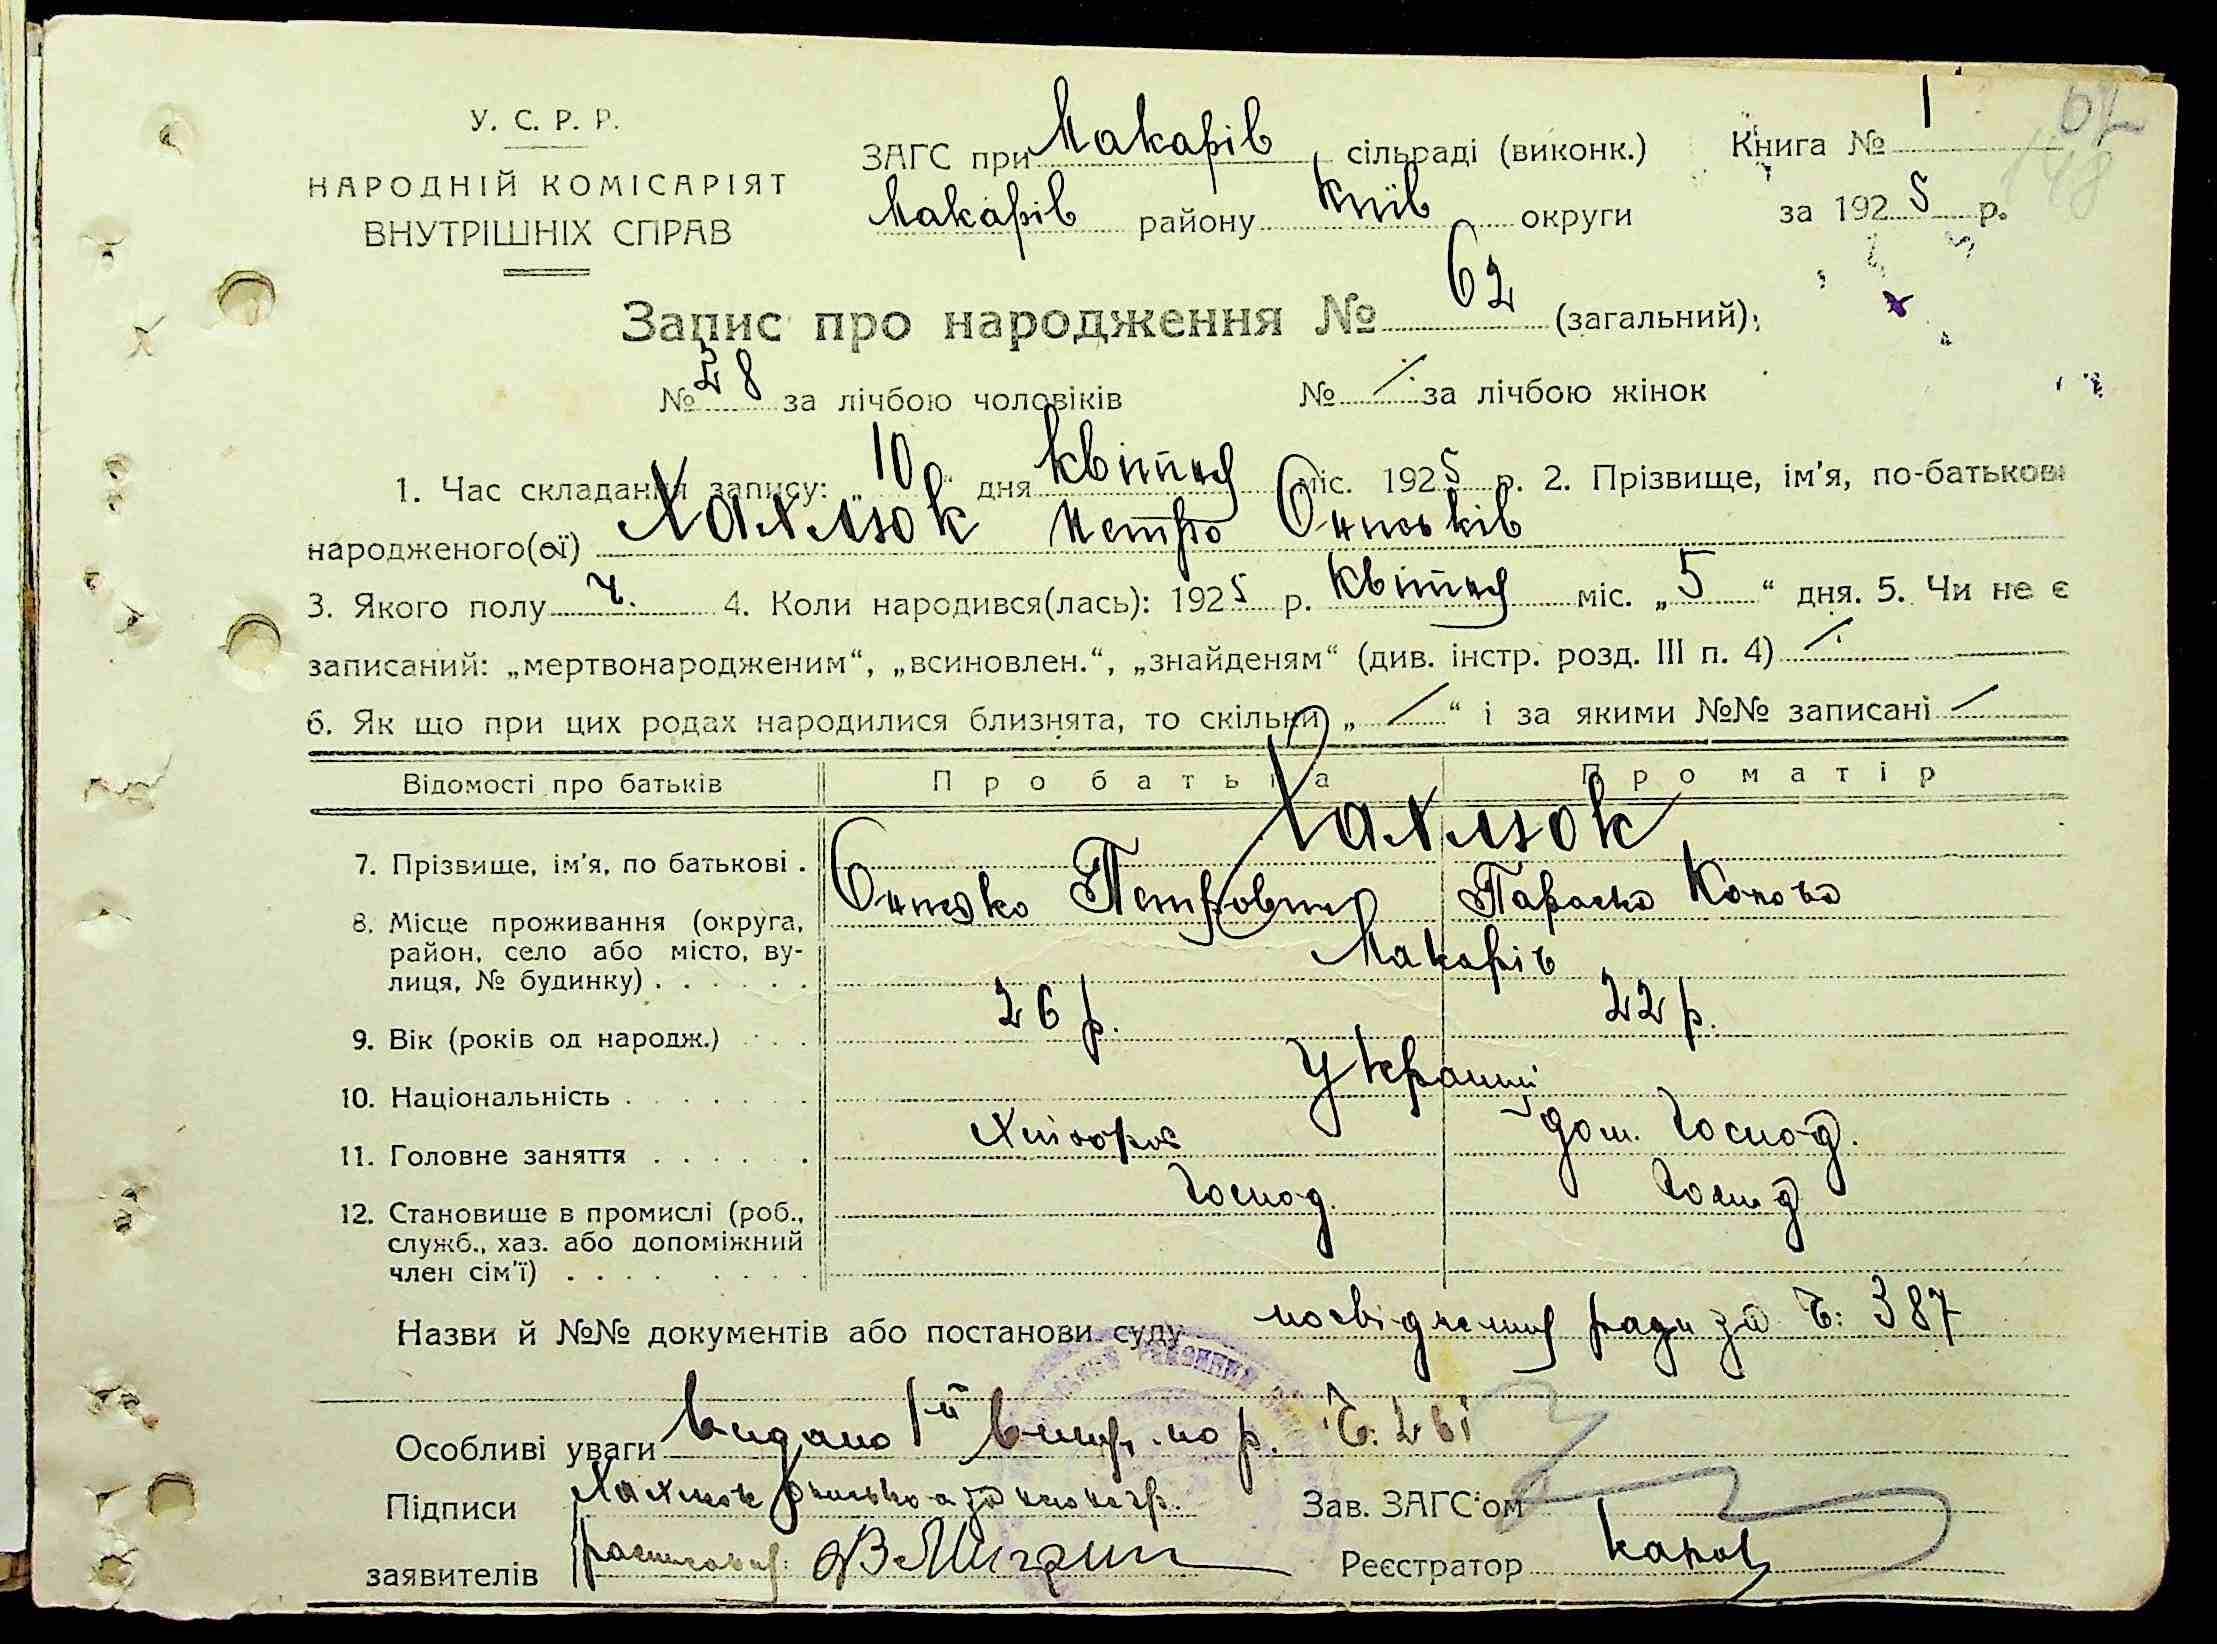 У. С. Р. Р.
НАРОДНІЙ КОМІСАРІЯТ
ВНУТРІШНІХ СПРАВ
ЗАГС при Макарів сільраді (виконк.) Книга № 1
Макарів району Київ округи за 1925 р.
62
148
Запис про народження № 62 (загальний);
№ 28 за лічбою чоловіків № /. за лічбою жінок
1. Час складання запису: „10“ дня квітня міс. 1925 р. 2. Прізвище, ім'я, по-батькові
народженого(ої) Хахлюк Петро Оничьків
3. Якого полу ч. 4. Коли народився(лась): 1925 р. квітня міс. „5“ дня. 5. Чи не є
записаний: „мертвонародженим“, „всиновлен.“, „знайденям“ (див. інстр. розд. III п. 4) /.
6. Як що при цих родах народилися близнята, то скільки „ / “ і за якими №№ записані /
Відомості про батьків Про батька Про матір
Хахлюк
7. Прізвище, ім'я, по батькові . Онисько Петрович Параска
8. Місце проживання (округа,
район, село або місто, ву-
лиця, № будинку) . . . . . . Макарів
9. Вік (років од народж.) . . . 26 р. 22 р.
10. Національність . . . . . . . Україн
11. Головне заняття . . . . . . Хлібороб дом. господ.
12. Становище в промислі (роб.,
служб., хаз. або допоміжний
член сім'ї) . . . . . . . . господ. господ
Назви й №№ документів або постанови суду посвідчення ради за Ч: 387
Особливі уваги Видано 1й по р. Ч.
Підписи Хахлюк Онисько а за
заявителів
Зав. ЗАГС'ом
Реєстратор